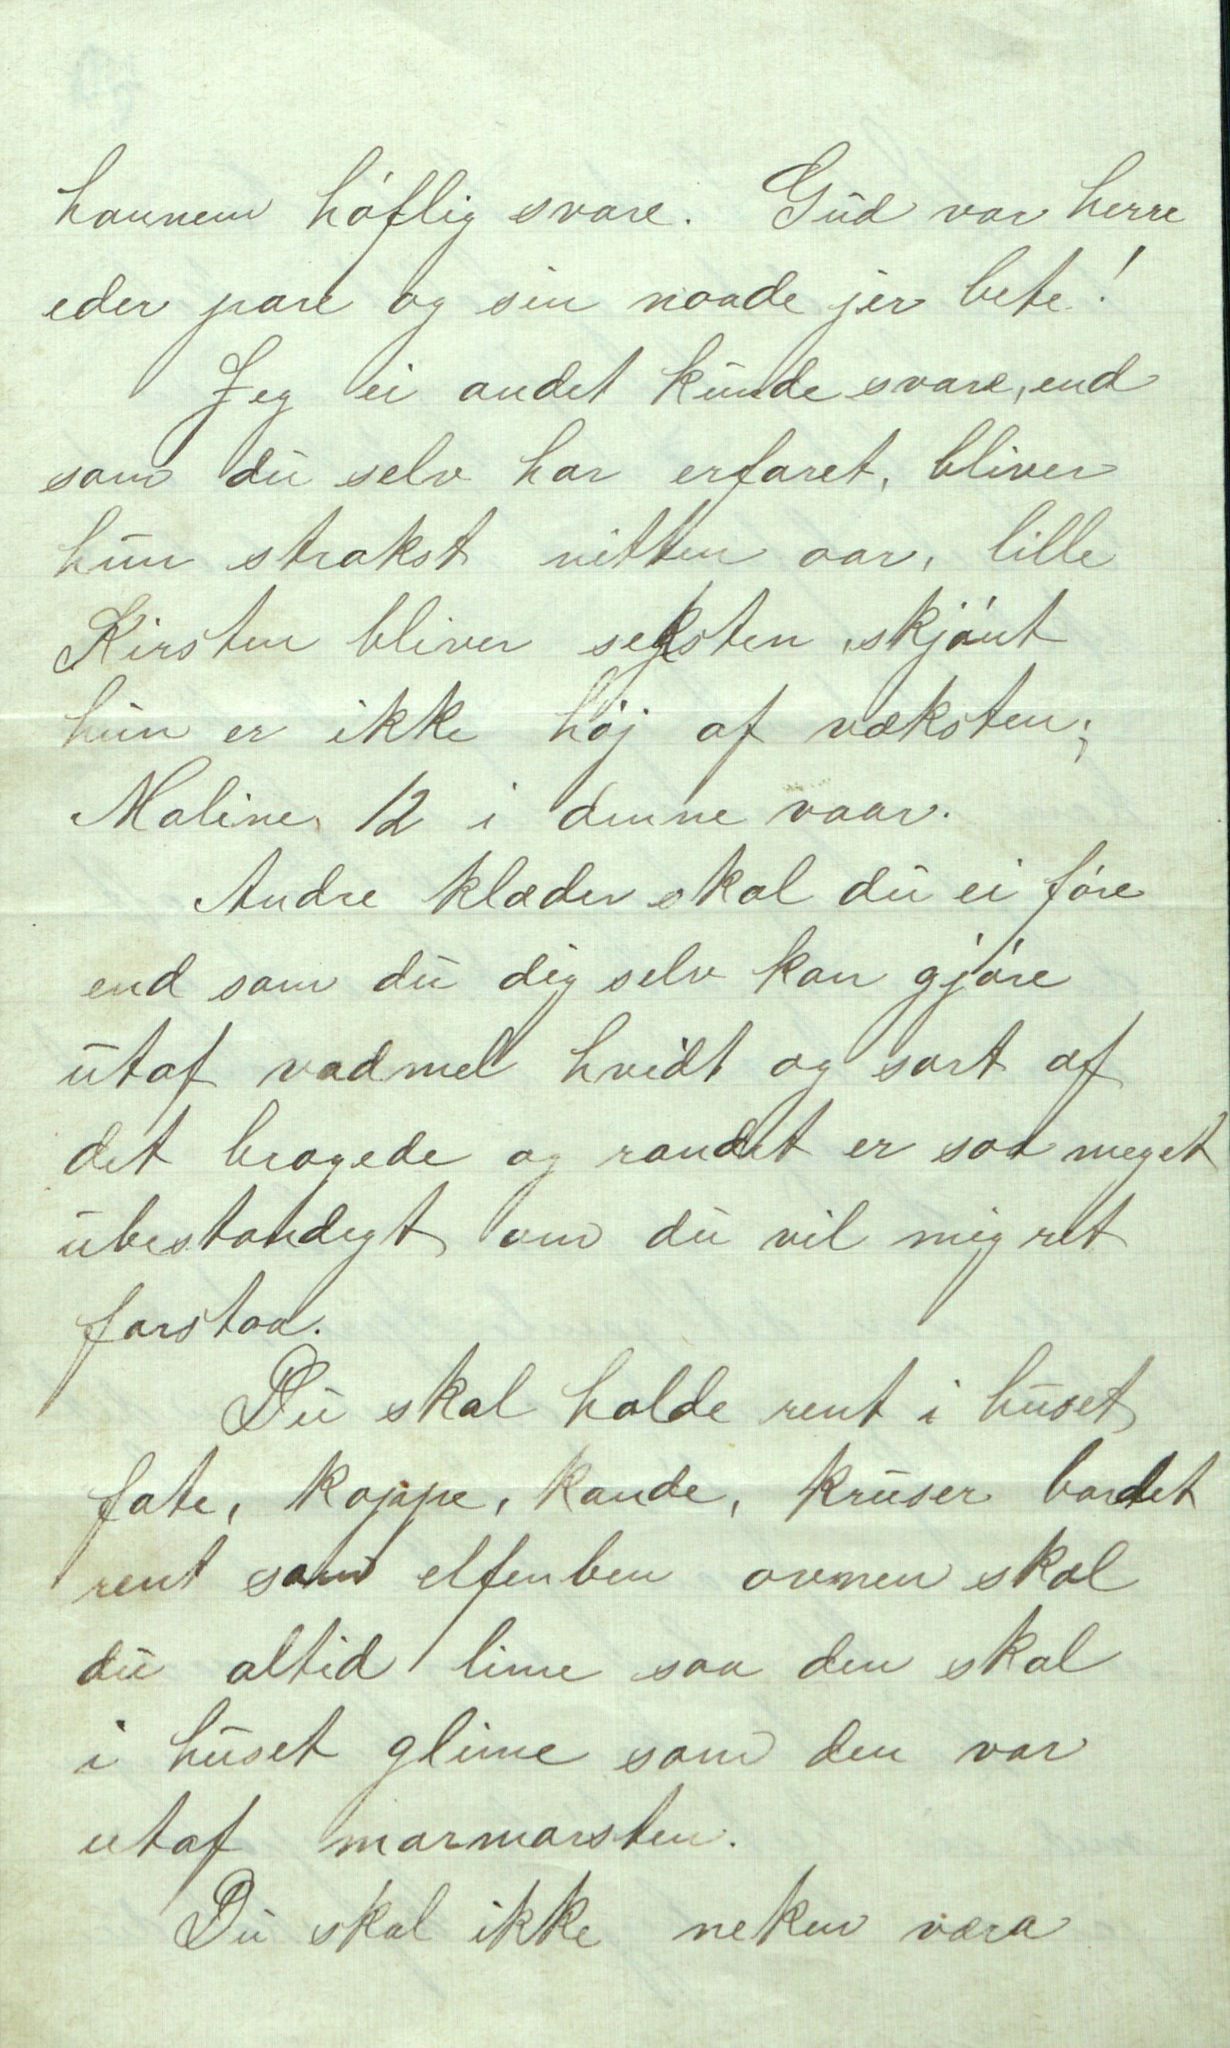 hannem höflig svare. Gud vor herre
eder pare og sin naade jer bete!
Jeg ei andet kunde svare, end
som du selv har erfaret, bliver
hun strakst nitten aar, lille
Kirsten bliver seksten, skjönt
hun er ikke höj af væksten;
Maline 12 i denne vaar.
Andre klæder skal du ei före
end som du dig selv kan gjöre
utaf vadmel hvidt og sort af
det brogede og randet er saa meget
ubestandigt om du vil mig ret
forstaa.
Du skal holde rent i huset
fate, koppe, kande, kruser bordet
rent som elfenben ovnen skal
du altid lime saa den skal
i huset glime som den var
utaf marmorsten.
Du skal ikke neken væra